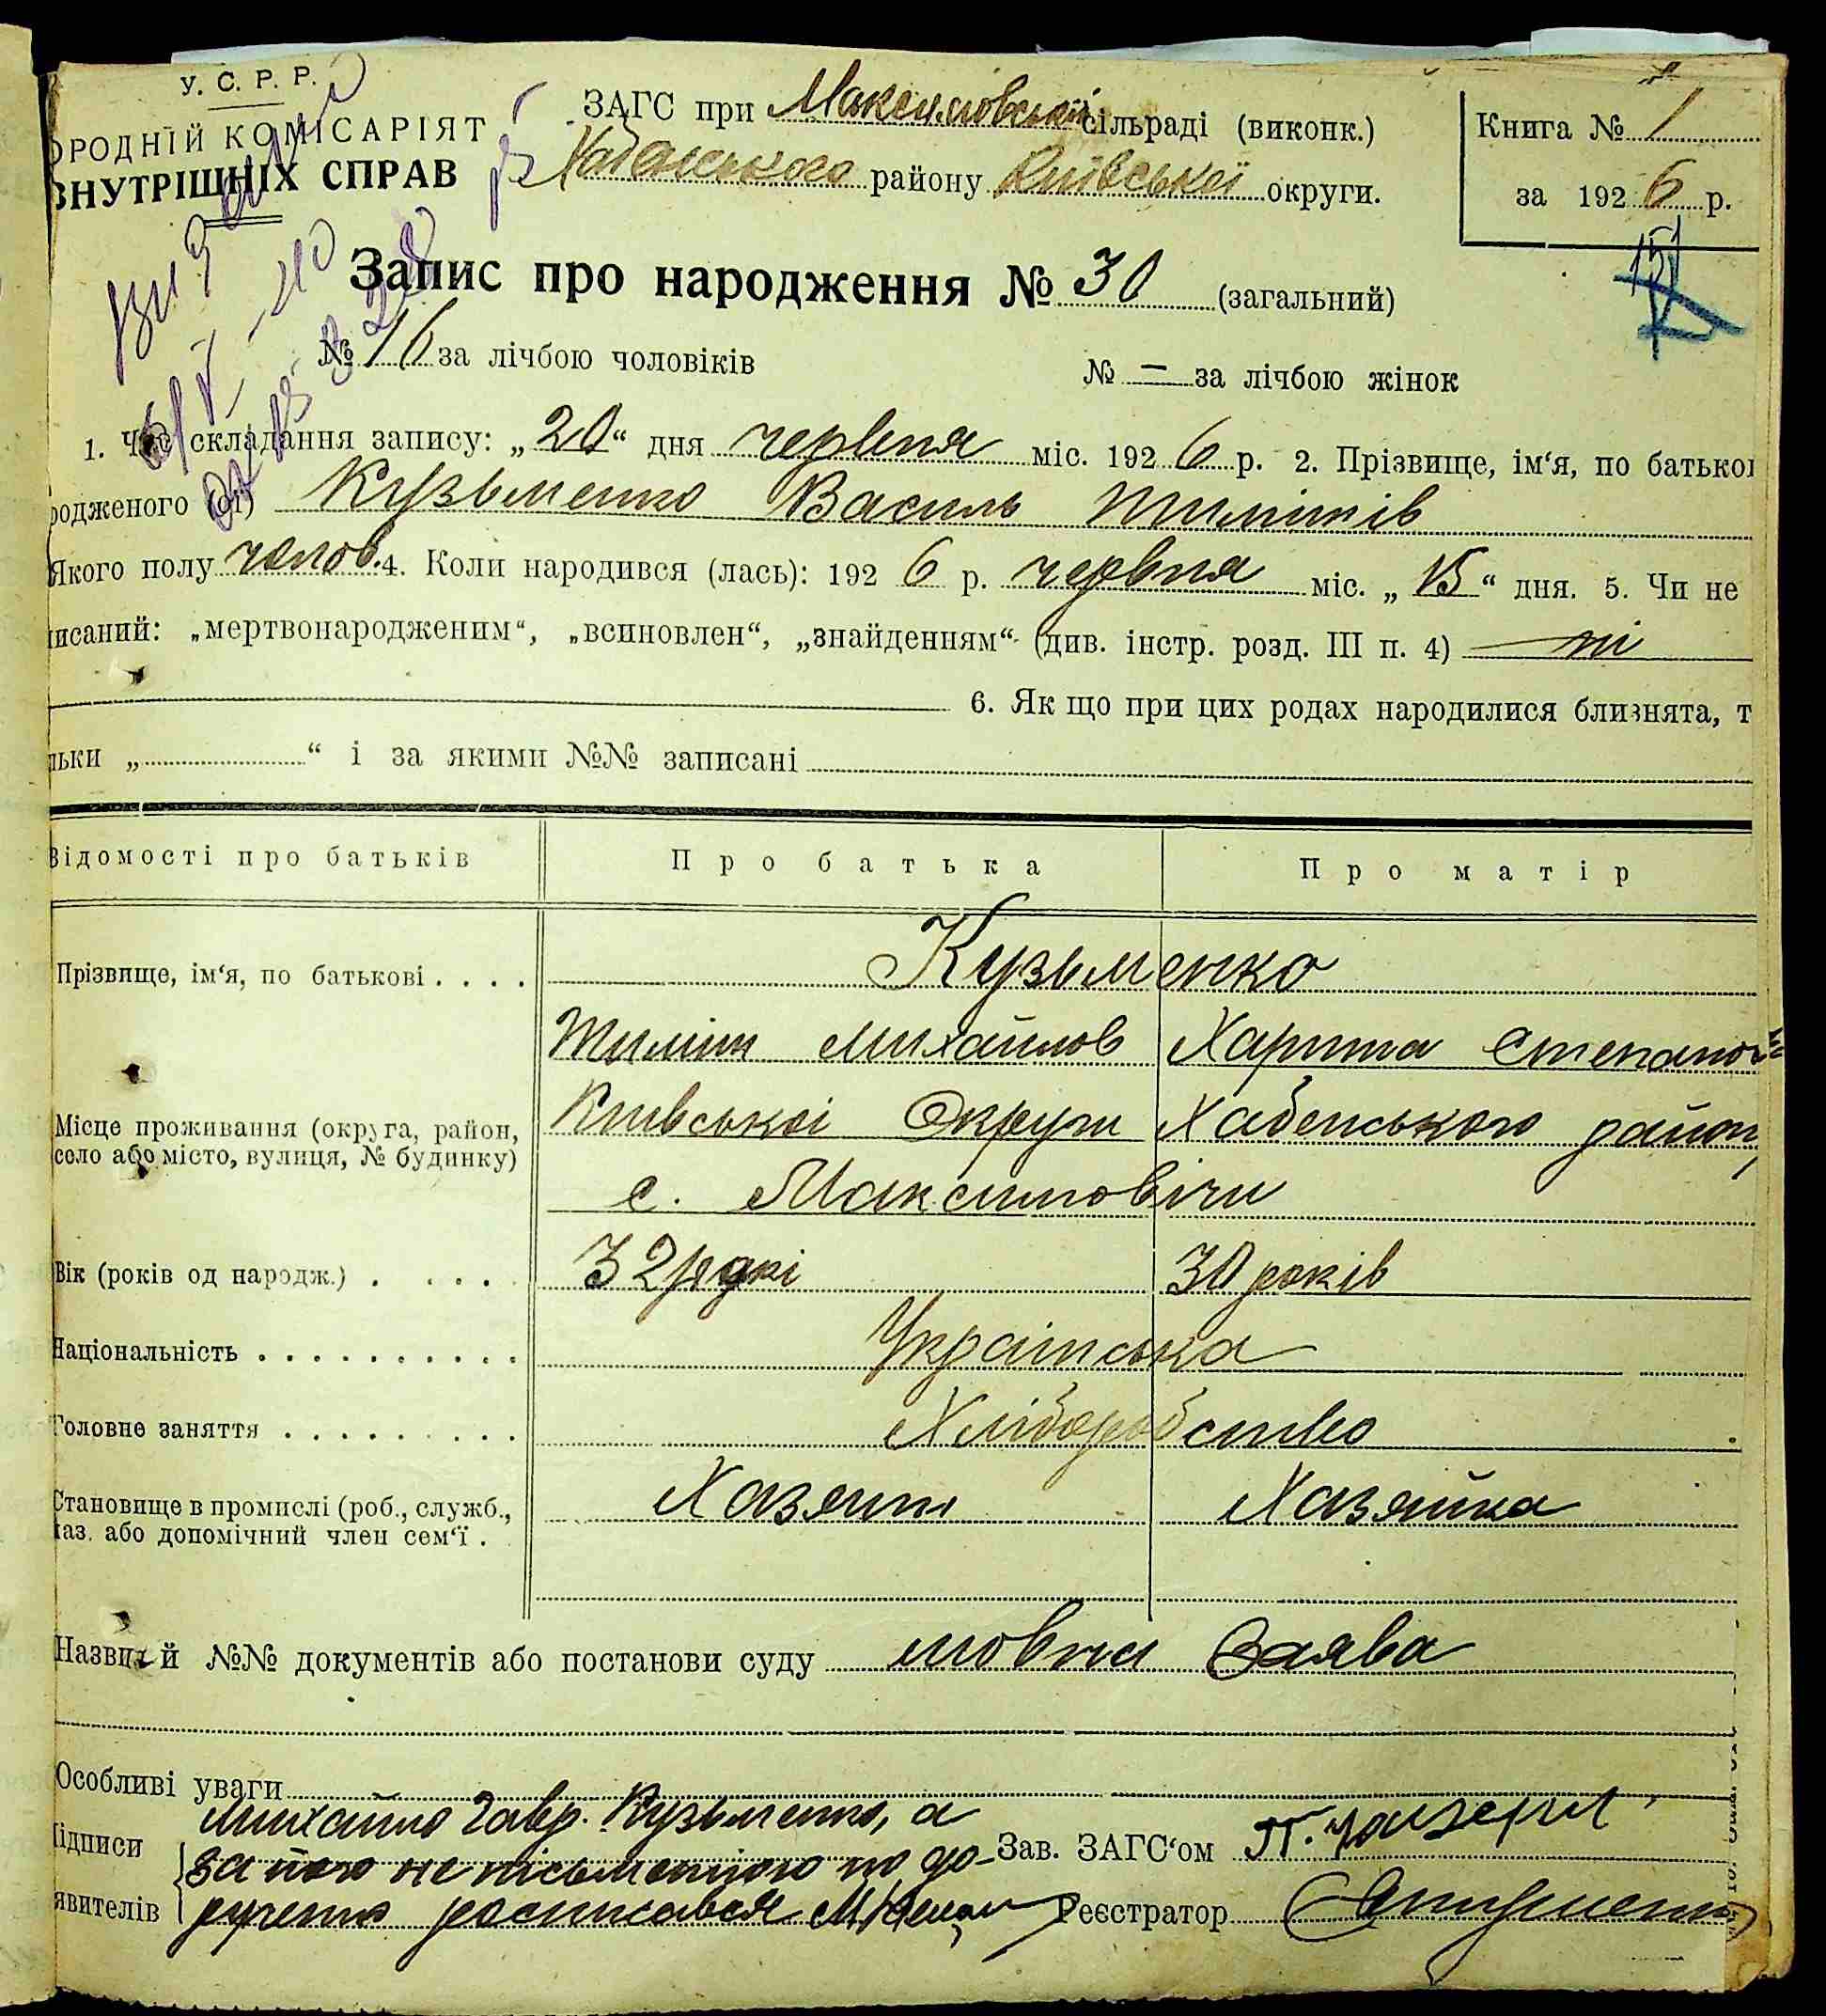 У. С. Р. Р.
ОРОДНІЙ КОМІСАРІЯТ
ВНУТРІШНІХ СПРАВ
ЗАГС при Максимовській сільраді (виконк.)
Хабенського району Київської округи.
Книга № 1
за 1926 р.
151
Запис про народження № 30 (загальний)
№ 16 за лічбою чоловіків № — за лічбою жінок
1. Час складання запису: „20“ дня червня міс. 1926 р. 2. Прізвище, ім‘я, по батькові
родженого (ої) Кузьменко Василь Тимітів
Якого полу чолов. 4. Коли народився (лась): 1926 р. червня міс. „15“ дня. 5. Чи не
писаний: „мертвонародженим“, „всиновлен“, „знайденням“ (див. інстр. розд. III п. 4) ні
6. Як що при цих родах народилися близнята, т
льки „ “ і за якими №№ записані
Відомості про батьків Про батька Про матір
Прізвище, ім‘я, по батькові . . . . Кузьменко
Тиміш Михайлов Харита Степанов
Місце проживання (округа, район, село або місто, вулиця, № будинку) Київської Округи Хабенського район
с. Максимовичи
Вік (років од народж.) . . . . 32 роки 30 років
Національність . . . . . . . . . . Українська
Головне заняття . . . . . . . . . Хліборобство
Становище в промислі (роб., служб., Хазяин Хазяйка
хаз. або допомічний член сем‘ї .
Назви й №№ документів або постанови суду мовна Заява
Особливі уваги
Підписи Михайло Гавр. Кузьменко, а
за него не пісьменного по до- Зав. ЗАГС‘ом П.
явителів рученю росписався Реєстратор